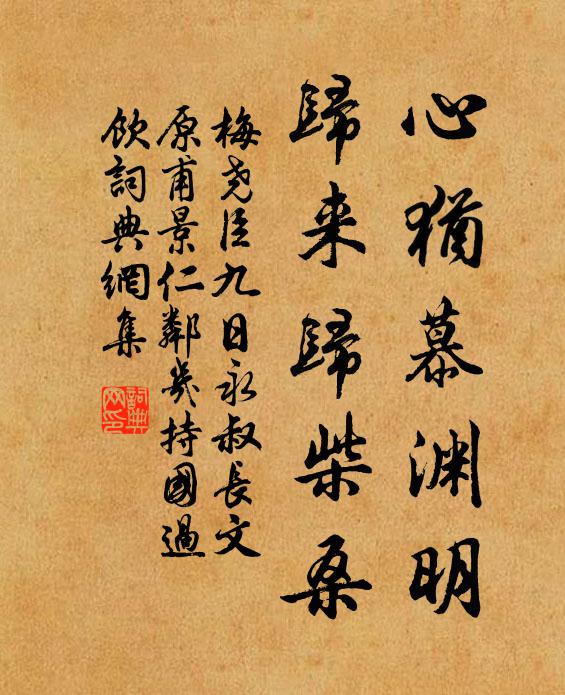 心猶慕渊明
歸来歸柴桑
梅尧臣九日永叔長文
原甫景仁鄰幾持國過
飲詞典網集
詞典
网印